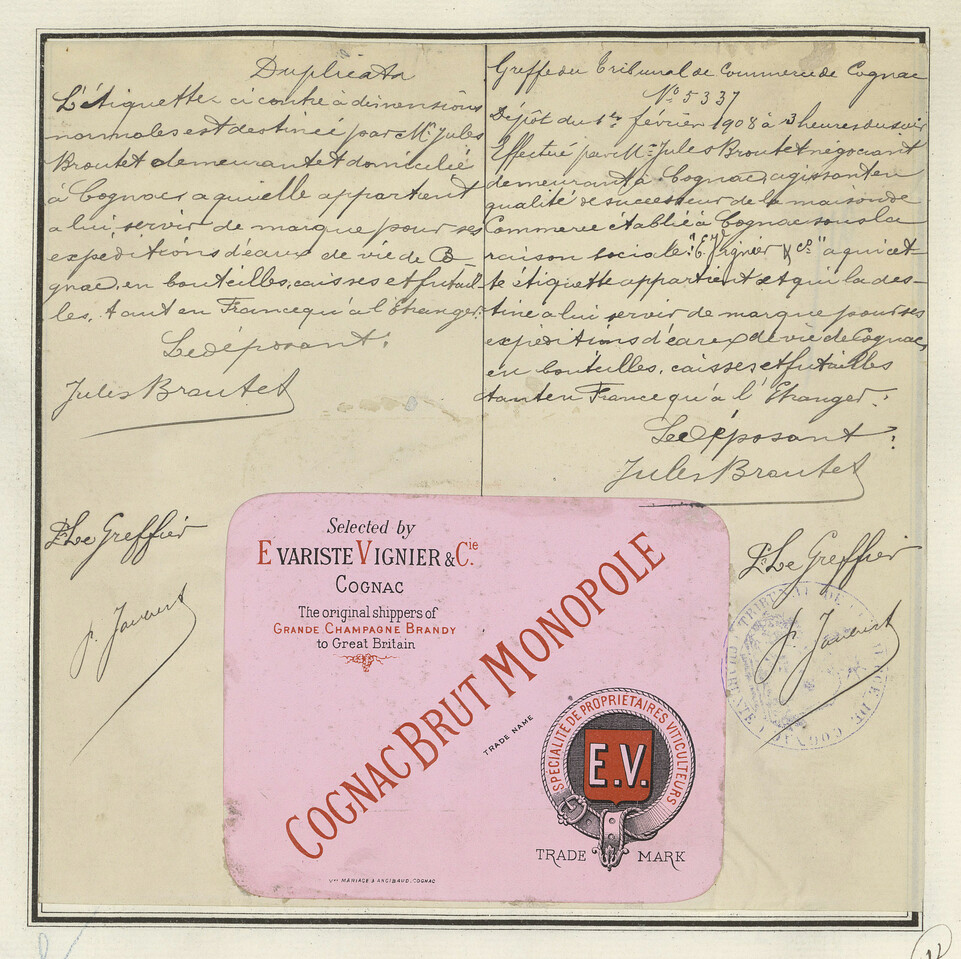 Duplicata
L'étiquette ci contre à dimensions
normales est destinée par Mr Jules
Broutet demeurant et domicilié
à Cognac, a qui elle appartient
a lui servir de marque pour ses
expéditions d'eaux de vie de Co-
gnac, en bouteilles, caisses et futail-
les, tant en France qu'à l'Etranger.
Le déposant:
Jules Broutet
Pr Le Greffier
Greffe du Tribunal de Commerce de Cognac
No 5337
Dépôt du 1er février 1908 à 3 heures du soir
Effectué par Mr Jules Broutet négociant
demeurant à Cognac, agissant en
qualité de successeur de la maison de
Commerce établie à Cognac sous la
raison sociale: "E. Vignier & Co" a qui cet-
te étiquette appartient et qui la des-
tine a lui servir de marque pour ses
expéditions d'eaux de vie de Cognac,
en bouteilles, caisses et futailles
tant en France qu'à l'Etranger.
Le déposant:
Jules Broutet
Pr Le Greffier
Selected by
EVARISTE VIGNIER & Cie
COGNAC
The original shippers of
GRANDE CHAMPAGNE BRANDY
to Great Britain
COGNAC BRUT MONOPOLE
TRADE NAME
SPÉCIALITÉ DE PROPRIÉTAIRES VITICULTEURS
E.V.
TRADE MARK
Vve MÉNIAGE & ANGIBAUD, COGNAC